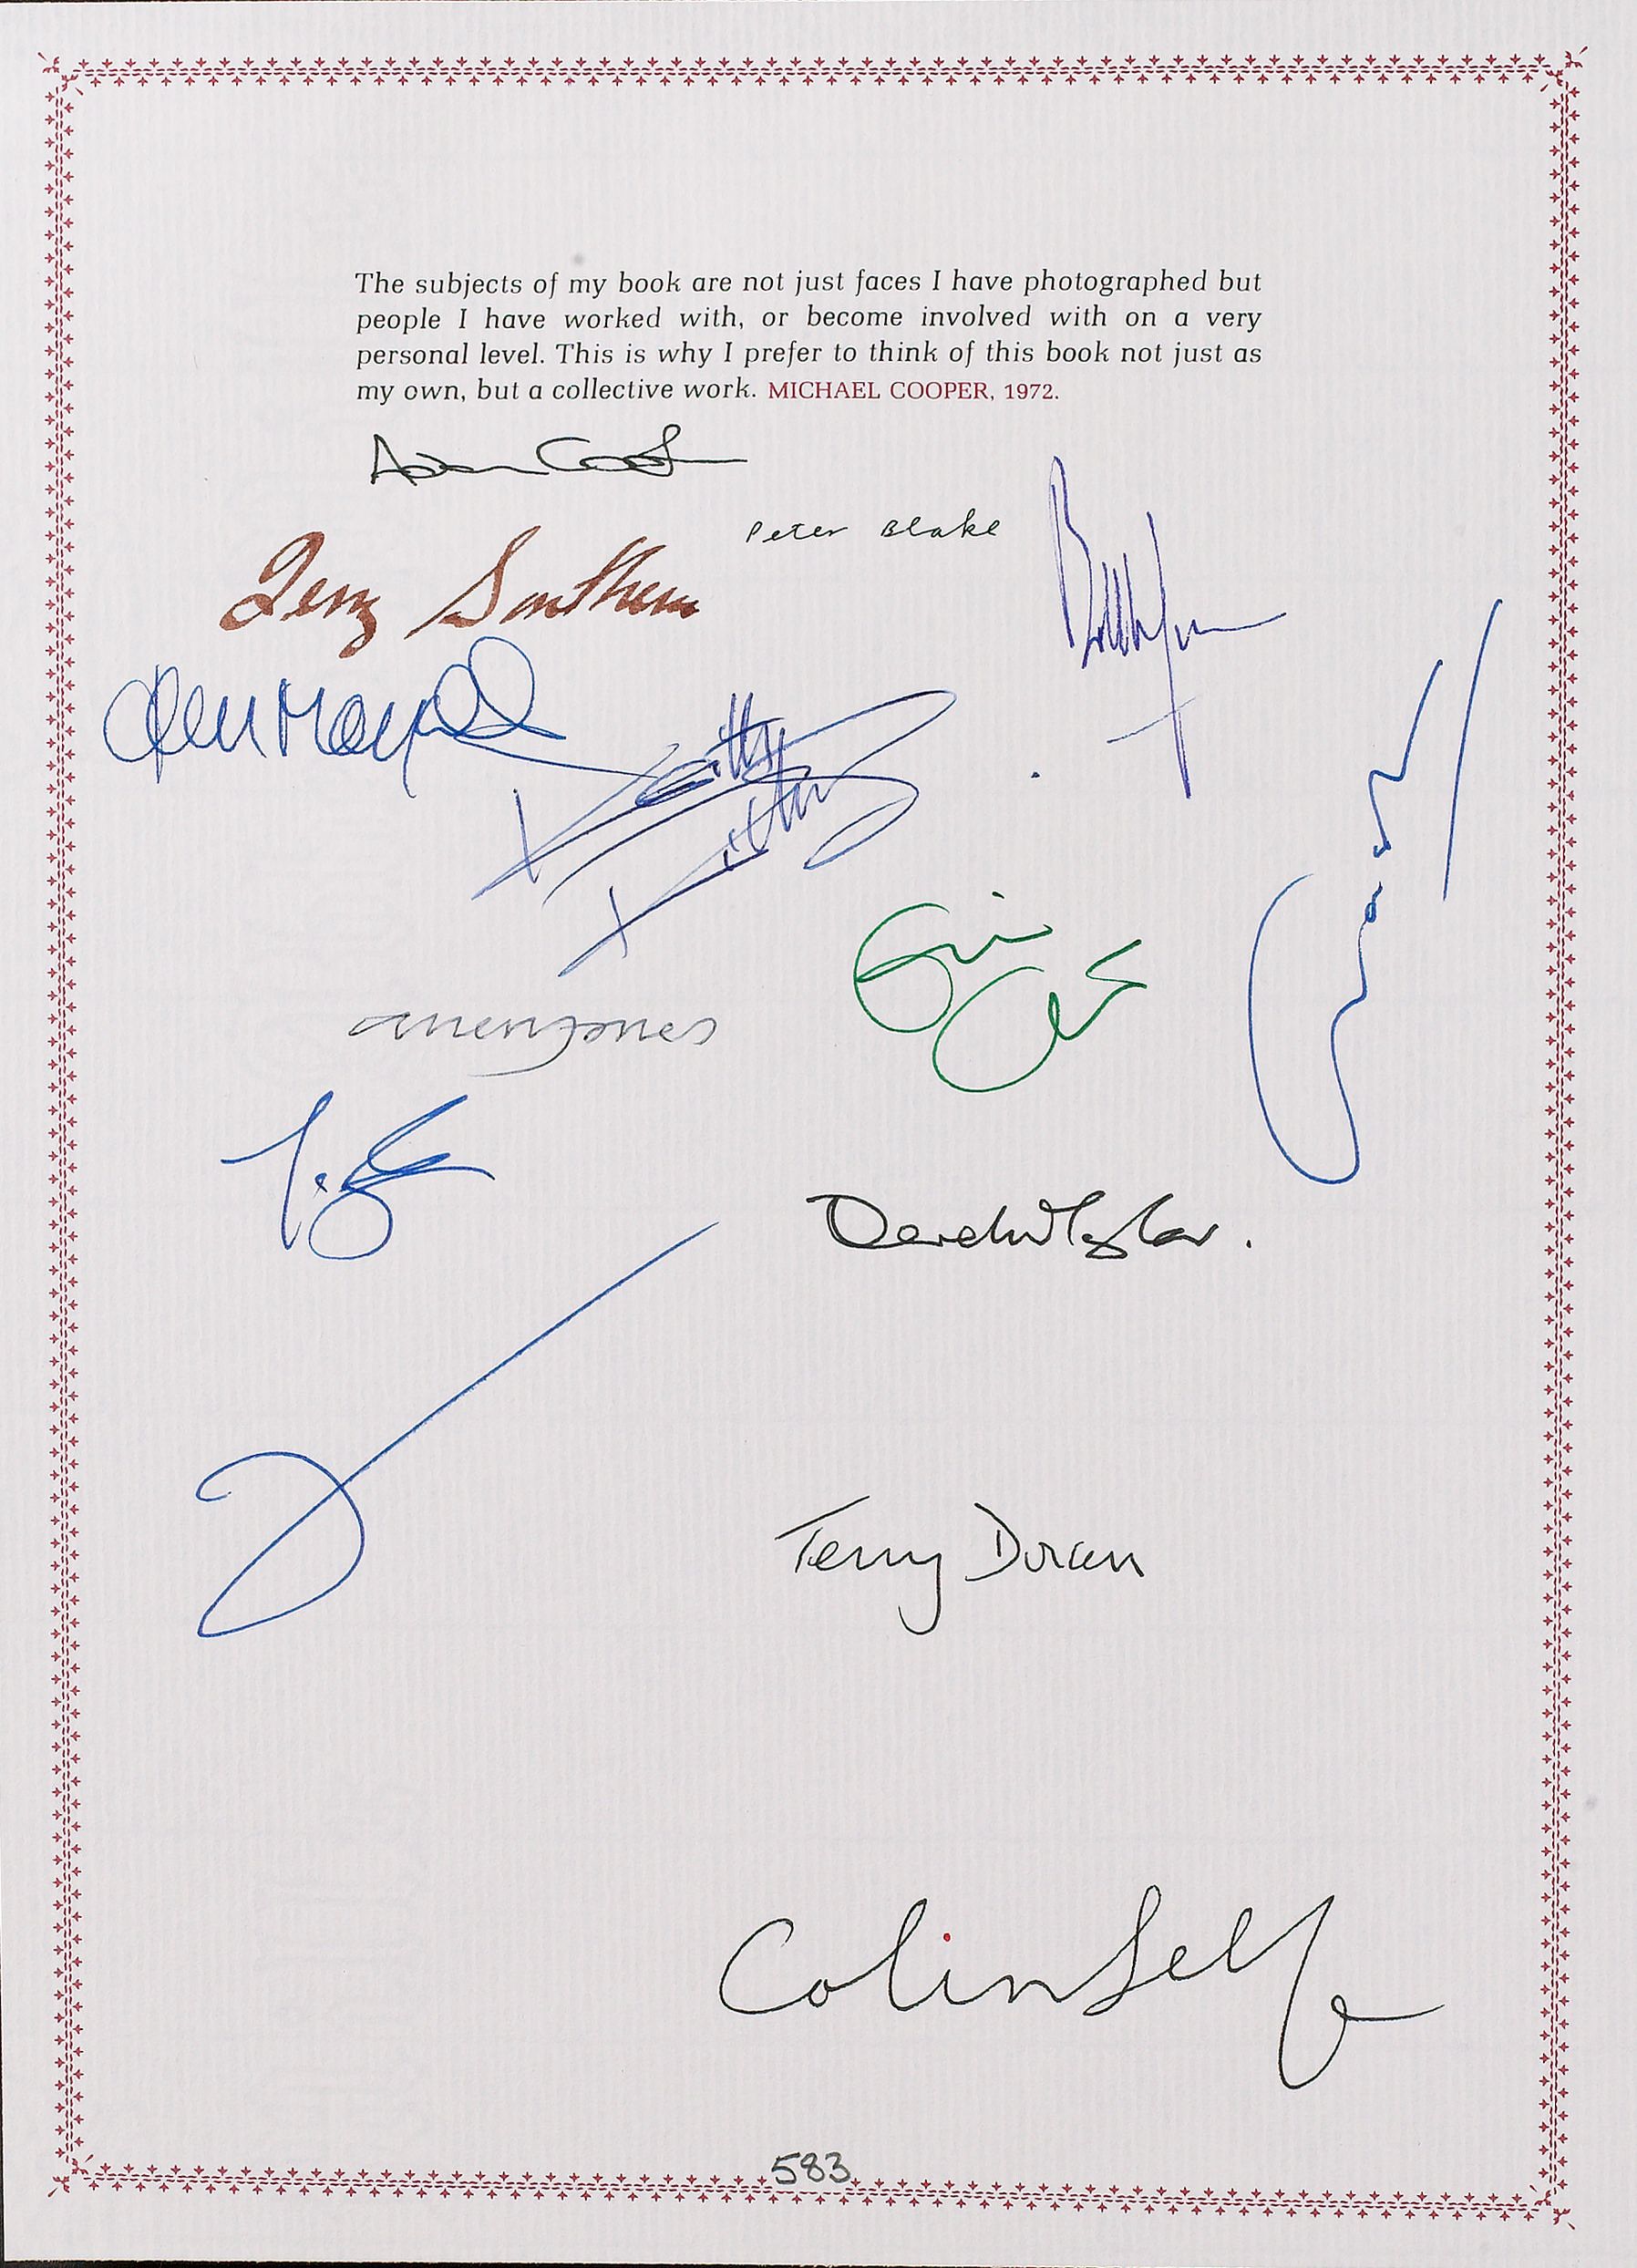 The subjects of my book are not just faces I have photographed but
people I have worked with, or become involved with on a very
personal level. This is why I prefer to think of this book not just as
my own, but a collective work. MICHAEL COOPER, 1972.
Adam Cooper
Peter Blake
Terry Southern
allen jones
Derek Taylor.
Terry Doran
Colin Self
583